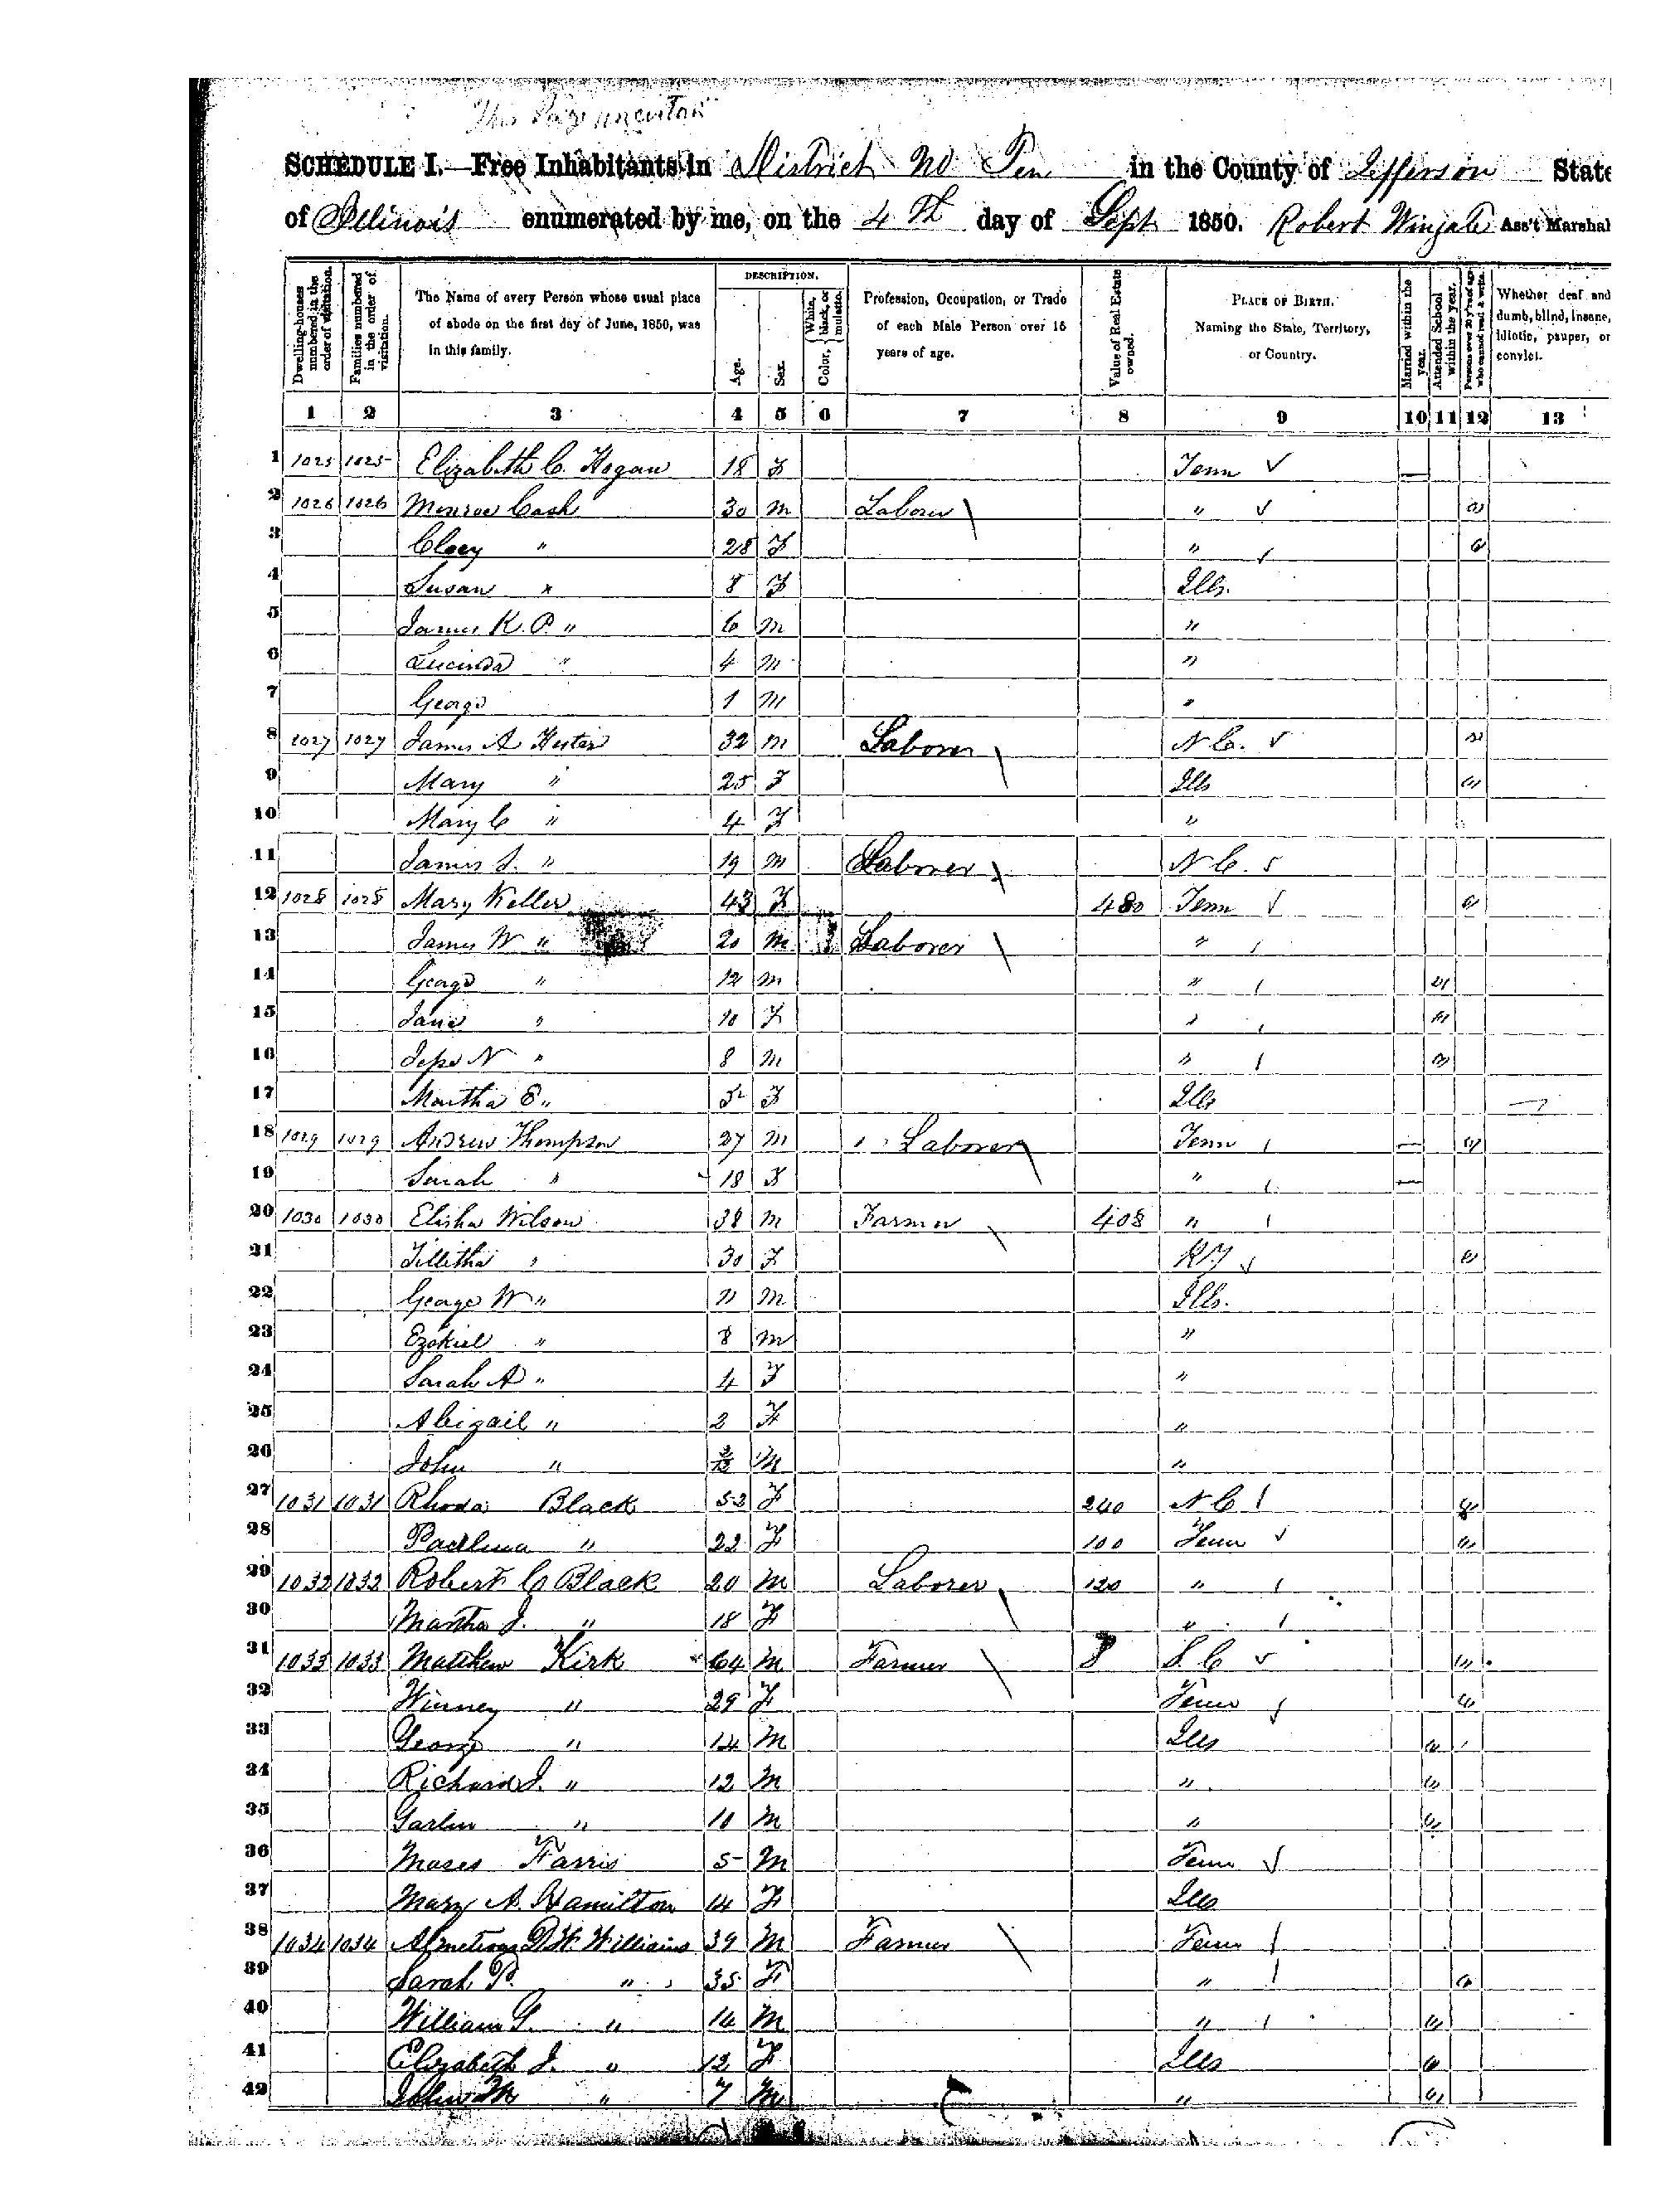 This Page uncertain
SCHEDULE I.—Free Inhabitants in District No Ten in the County of Jefferson State
of Illinois enumerated by me, on the 4th day of Sept 1850. Robert Wingate Ass't Marshal
Dwelling-houses numbered in the order of visitation.
Families numbered in the order of visitation.
The Name of every Person whose usual place of abode on the first day of June, 1850, was in this family.
DESCRIPTION.
Age.
Sex.
Color, White, black, or mulatto.
Profession, Occupation, or Trade of each Male Person over 15 years of age.
Value of Real Estate owned.
PLACE OF BIRTH. Naming the State, Territory, or Country.
Married within the year.
Attended School within the year.
Persons over 20 y'rs of age who cannot read & write.
Whether deaf and dumb, blind, insane, idiotic, pauper, or convict.
1 2 3 4 5 6 7 8 9 10 11 12 13
1 1025 1025 Elizabeth C. Hogan 18 F Tenn √ —
2 1026 1026 Monroe Cash 30 M Laborer " √ "
3 Cloey " 28 F " √ "
4 Susan " 8 F Ills.
5 James K. P. " 6 M "
6 Lucinda " 4 M "
7 George 1 M "
8 1027 1027 James A Hester 32 M Laborer N C. √ "
9 Mary " 25 F Ills "
10 Mary C " 4 F "
11 James S. " 19 M Laborer N C. √
12 1028 1028 Mary Keller 43 F 480 Tenn √ "
13 James W " 20 M Laborer " /
14 George " 12 M " / "
15 Jane " 10 F " / "
16 Jesse N " 8 M " / "
17 Martha E " 5 F Ills
18 1029 1029 Andrew Thompson 27 M Laborer Tenn / — "
19 Sarah " 18 F " / —
20 1030 1030 Elisha Wilson 38 M Farmer 408 " /
21 Tillitha " 30 F KY √ "
22 George W " 11 M Ills.
23 Ezekiel " 8 M "
24 Sarah A " 4 F "
25 Abigail " 2 F "
26 John " M "
27 1031 1031 Rhoda Black 52 F 240 N C / "
28 Padlina " 22 F 100 Tenn √ "
29 1032 1032 Robert C Black 20 M Laborer 120 " /
30 Martha J. " 18 F " /
31 1033 1033 Matthew Kirk 64 M Farmer S C √ "
32 Winney " 29 F Tenn √ "
33 George " 14 M Ills "
34 Richard J. " 12 M " "
35 Garlin " 10 M " "
36 Moses Farris 5 M Tenn √
37 Mary A. Hamilton 14 F Ills
38 1034 1034 Williams 39 M Farmer Tenn /
39 Sarah P. " 35 F " / "
40 William G. " 14 M " / "
41 Elizabeth J. " 12 F Ills "
42 John " 7 M " "